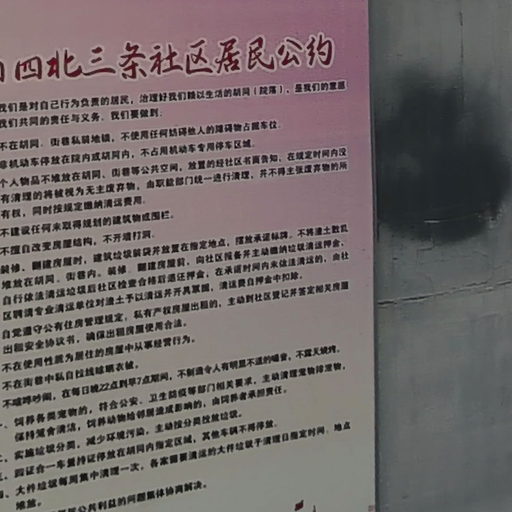 四北三条社区居民公约
我们是对自己行为负责的居民，治理好我们赖以生活的胡同（院落），是我们的意愿
我们共同的责任与义务。我们要做到：
不在胡同、街巷私装地锁，不使用任何妨碍他人的障碍物占据车位。
非机动车停放在院内或胡同内，不占用机动车专用停车区域。
个人物品不堆放在胡同、街巷等公共空间，放置的经社区书面告知，在规定时间内没
有清理的将被视为无主废弃物，由职能部门统一进行清理，并不得主张废弃物的所
有权，同时按规定缴纳清运费用。
不建设任何未取得规划的建筑物或围栏。
不擅自改变房屋结构，不开墙打洞。
装修、翻建房屋时，建筑垃圾装袋并放置在指定地点，摆放承诺标牌，不将渣土散乱
堆放在胡同、街巷内。装修、翻建房屋前，向社区报备并主动缴纳垃圾清运押金，
自行依法清运垃圾后社区检查合格后退还押金，在承诺时间内未依法清运的，由社
区聘请专业清运单位对渣土予以清运并开具票据，清运费自押金中扣除。
自觉遵守公有住房管理规定，私有产权房屋出租的，主动到社区登记并签定相关房屋
出租安全协议书，确保出租房屋使用合法。
不在使用性质为居住的房屋中从事经营行为。
不在街巷中私自拉线晾晒衣被。
不喧哗吵闹，在每日晚22点到早7点期间，不制造令人有明显不适的噪音，不露天烧烤。
、饲养各类宠物的，符合公安、卫生防疫等部门相关要求，主动清理宠物排泄物，
保持笼舍清洁，饲养动物给邻居造成影响的，由饲养者承担责任。
、实施垃圾分类，减少环境污染，主动按分类投放垃圾。
、四证合一车量持证停放在胡同内指定区域，其他车辆不得停放。
、大件垃圾每周集中清理一次，各家需要清运的大件垃圾于清理日指定时间、地点
堆放。
公共利益的问题集体协商解决。